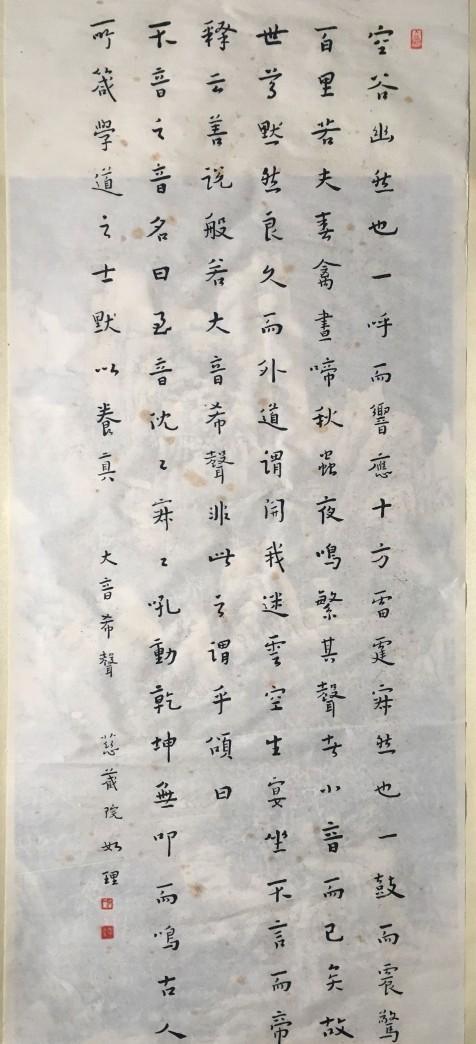 空谷幽然也一呼而響應十方雷霆寂然也一鼓而震驚
百里若夫春禽晝啼秋蟲夜鳴繁其聲者小音而已矣故
世尊默然良久而外道謂開我迷雲空生宴坐不言而帝
釋云善説般若大音希聲非此之謂乎頌曰
不音之音名曰至音沈〻寂〻吼動乾坤無叩而鳴古人
所箴學道之士默以養真
大音希聲
慈蔵院如理